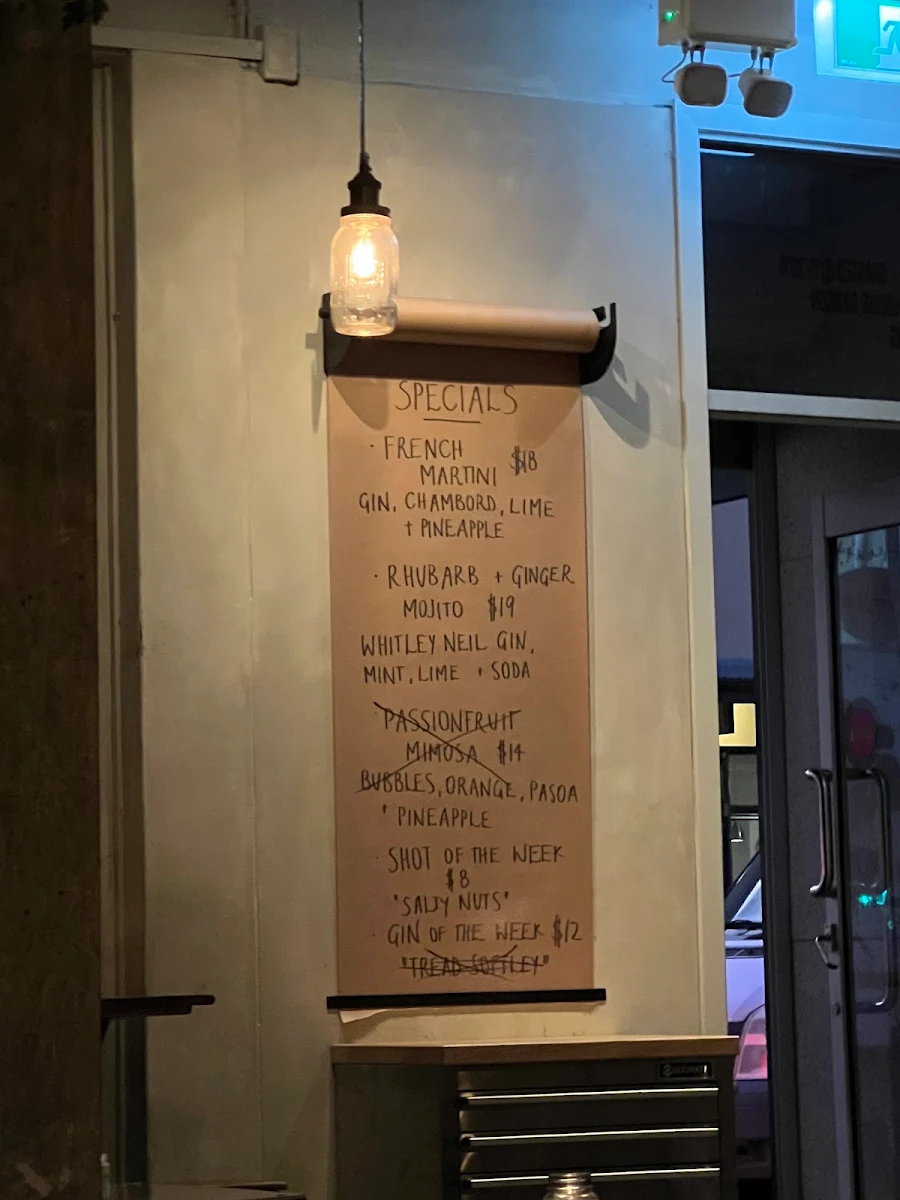 SPECIALS
· FRENCH $18
MARTINI
GIN, CHAMBORD, LIME
+ PINEAPPLE
· RHUBARB + GINGER
MOJITO $19
WHITLEY NEIL GIN,
MINT, LIME + SODA
PASSIONFRUIT
MIMOSA $14
BUBBLES, ORANGE, PASOA
' PINEAPPLE
· SHOT OF THE WEEK
$8
"SALTY NUTS"
· GIN OF THE WEEK $12
"TREAD SOFTLEY"